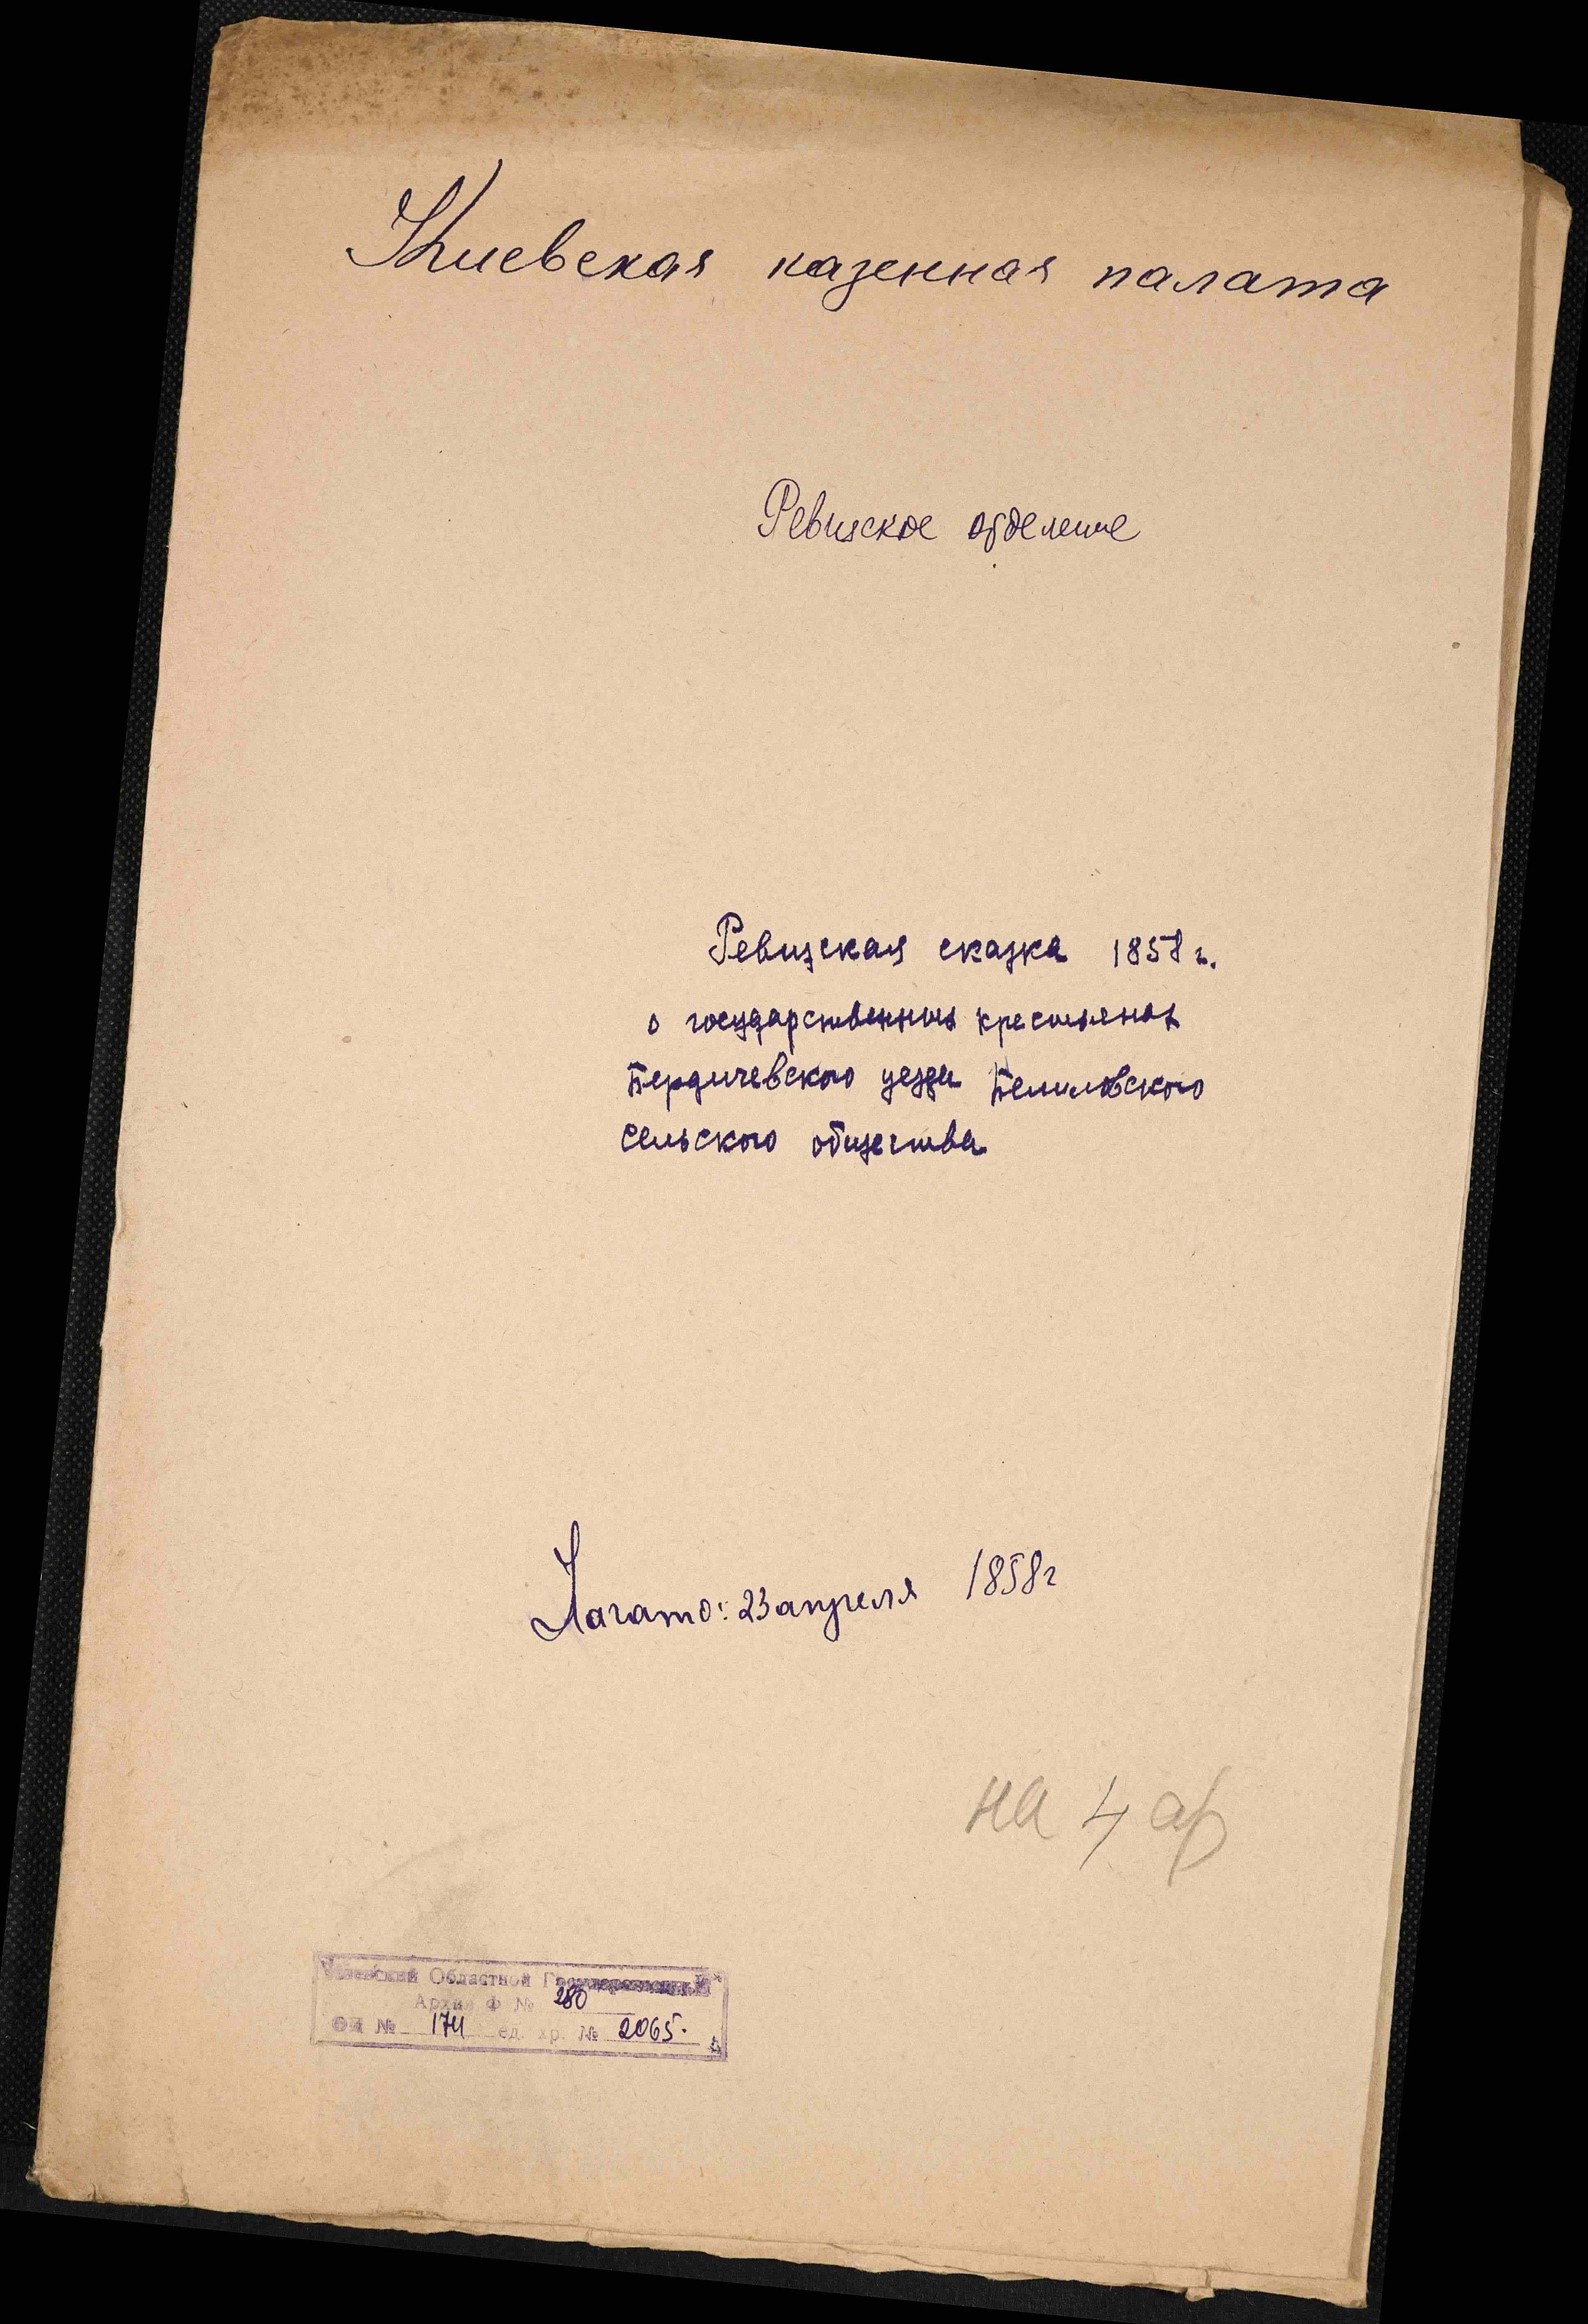 Киевская казенная палата
Ревизское отделение
Ревизская сказка 1858 г.
о государственных крестьянах
Бердичевского уезда Белиловского
сельского общества
Начато: 23 апреля 1858 г
на 4 ар
Киевский Областной Государственный
Архив Ф № 280
оп № 174 ед. хр. № 2065.